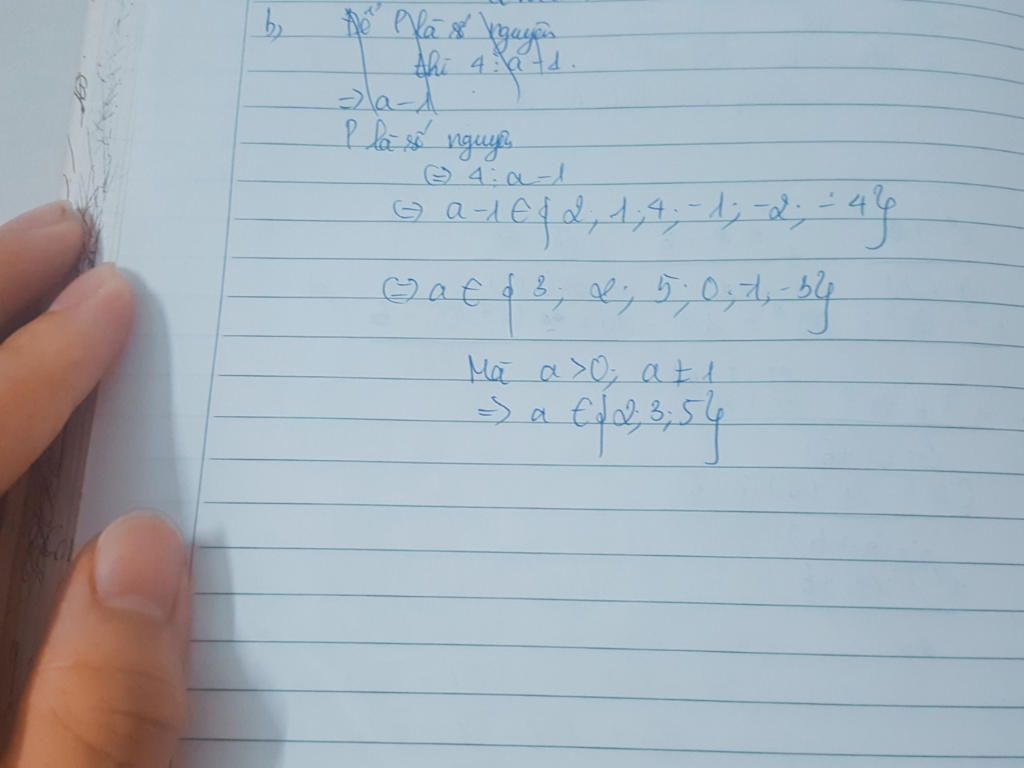 b, Để P là số nguyên
thì 4 ⋮ a-1.
=> a-1
P là số nguyên
<=> 4 ⋮ a-1
<=> a-1 ∈ { 2, 1; 4; -1; -2; -4}
<=> a ∈ { 3; 2; 5; 0; -1, -3}
Mà a > 0; a ≠ 1
=> a ∈ {2; 3; 5}